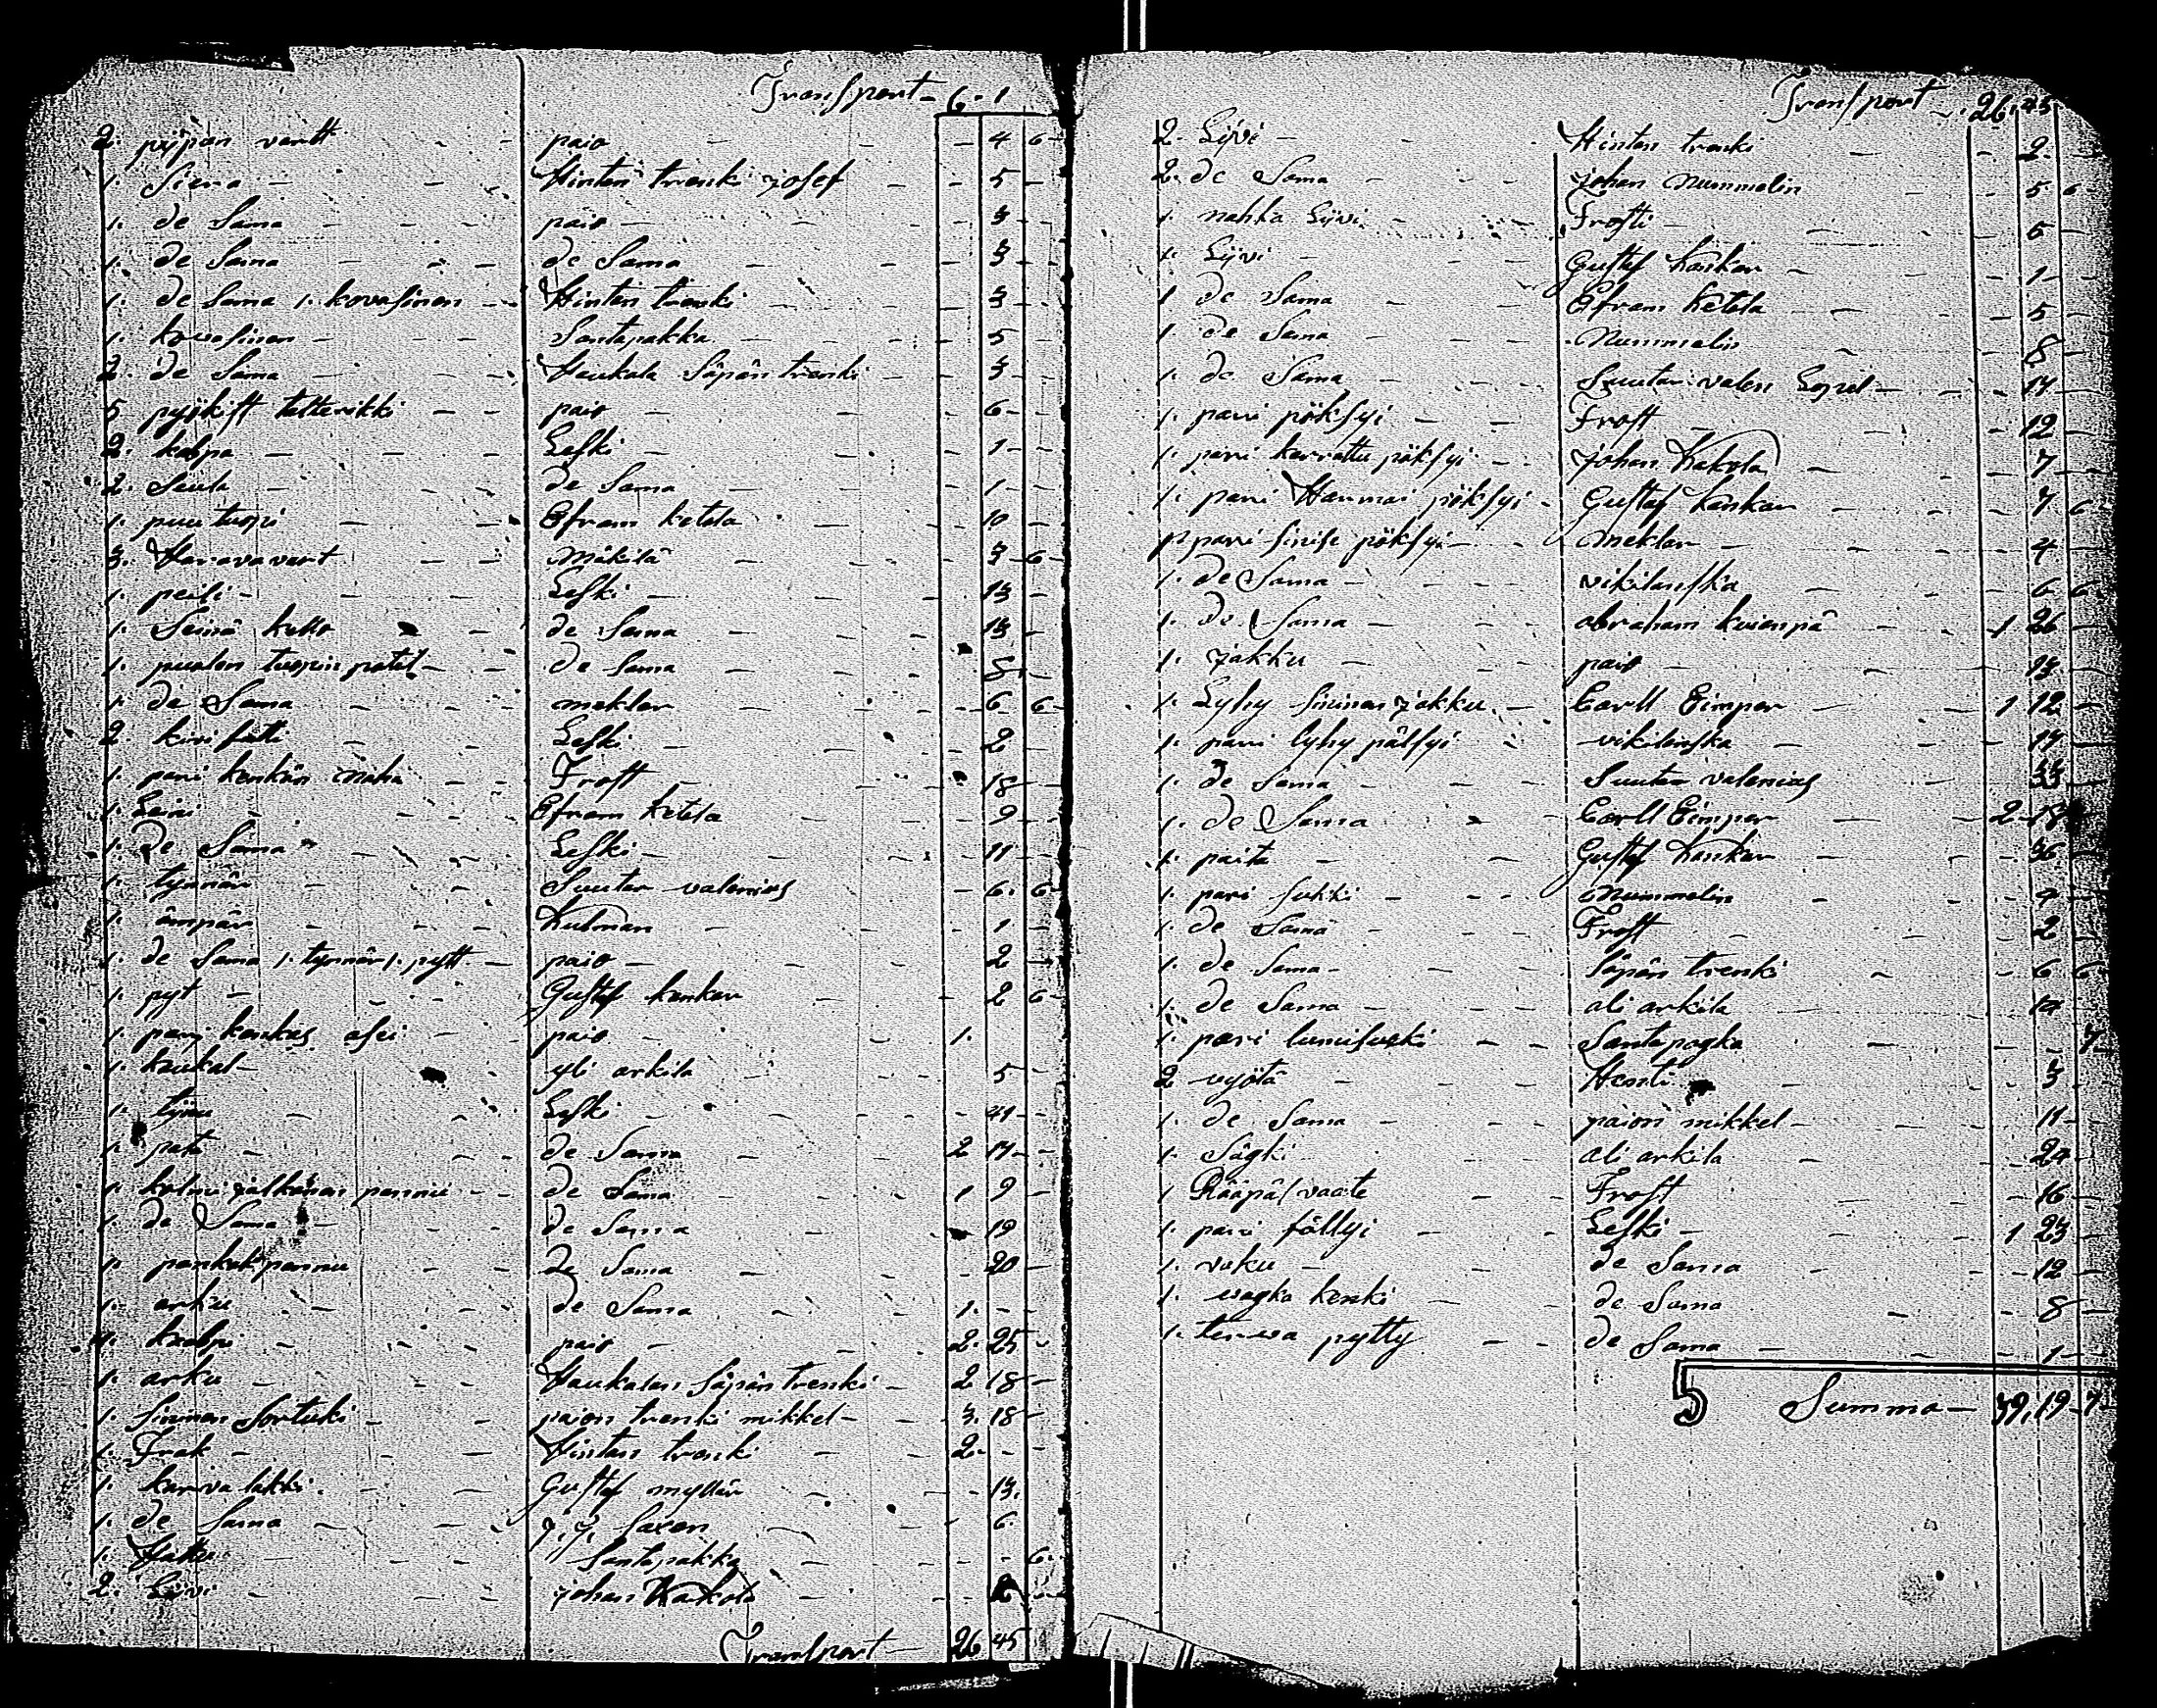 Transport - 6 - 1
2. pijpan vartt - - paio - - 4 6
1. Siera - - Hinten trenki Josef - - 5 -
1. de Sama - - paio - - 3 -
1. de Sama - - de Sama - - 3 -
1. de Sama 1. kovasinen - - Hinten trenki - - 3 -
1. kovasinen - - Santapakka - - 5 -
2. de Sama - - Haukala Säpän trenki - - 3 -
5 pyökift tetterikki - - paio - - 6 -
2. kappa - - Leski - - 1 -
2. Seula - - de Sama - - 1 -
1. puu tuopi - - Efram ketela - - 10 -
3. Haravavart - - Mäkilä - - 3 6
1. peili - - Leski - - 13 -
1. Seinä kello - - de Sama - - 13 -
1. puolen tuopin potel - - de Sama - - 8 -
1. de Sama - - mekler - - 6 6
2. kivi fati - - Leski - - 2 -
1. pari kenkän naha - - Frost - - 18 -
1. Leini - - Efram ketela - - 9 -
1. De Sama - - Leski - - 11 -
1. tynnör - - Suutar valenius - - 6. 6
1. ämpär - - Kulman - - 1 -
1. de Sama 1. tynnör 1. pytt - - paio - - 2 -
1. pyt - - Gustef kankar - - 2 6
1. pari kankas asei - - paio - 1. - -
1. kaukal - - yli arkila - - 5 -
1. tynu - - Leski - - 41 -
1. pata - - de Sama - 2 17 -
1. kolmi jalkanen pannu - - de Sama - 1 9 -
1. de Sama - - de Sama - - 19
1. pankak pannu - - de Sama - - 20 -
1. arku - - de Sama - 1. - -
1. kaapi - - paio - 2. 25 -
1. arku - - Haukalan Säpän trenki - 2 18 -
1. Sininen Sortuki - - paion trenki mikkel - 3. 18 -
1. Frak - - Hinten trenki - 2. - -
1. karva lakki - - Gustef myllär - - 13.
1. de Sama - - J. J. Saxen - - 6.
1. Hattu - - Santapakka - - - 6.
2. Lijvi - - johan Kakola - - 2 -
Transport - 26 45
Transport - 26. 45
2. Lijvi - - Hinten trenki - - 2. -
2. de Sama - - johan Nummelin - - 5 6
1. nahka Lijvi - - Frosti - - 5 -
1. Lijvi - - Gustef Kankar - - 1 -
1 de Sama - - Efram Ketela - - 5 -
1 de Sama - - Nummelin - - 8 -
1. de Sama - - Suutar valen - - 17 -
1. pari pöksyi - - Frost - - 12 -
1. pari karvattu pöksyi - - Johan Kakola - - 7 -
1. pari Harmai pöksyi - - Gustaf Kankar - - 7 6
1. pari sinise pöksyi - - Mekler - - 4 -
1. de Sama - - vikilanska - - 6 6
1. de Sama - - abraham kuienpä - 1 26 -
1. Jakku - - paio - - 13 -
1. Lyhy sininen Jakku - - Carll Eimper - 1 12 -
1. pari lyhy pältsyi - - vikilanska - - 17 -
1. de Sama - - Suutar valenius - - 33 -
1. de Sama - - Carll Eimper - 2 18 -
1. paita - - Gustef Kankar - - 36 -
1. pari sukki - - Nummelin - - 4 -
1. de Sama - - Frost - - 2 -
1. de Sama - - Säpän trenki - - 6 6
1. de Sama - - ali arkila - - 14 -
1. pari lumisuski - - Santapagka - - - 7
2 vyötä - - Henti - - 3 -
1. de Sama - - paion mikkel - - 11 -
1. Sägki - - ali arkila - - 24 -
1 Rääpäl vaate - - Frost - - 16 -
1. pari föllyi - - Leski - 1 23 -
1. vaku - - de Sama - - 12 -
1. wagka kenki - - de Sama - - 8 -
1. terwa pytty - - de Sama - - 1 -
5 Summa - 39. 19 - 7 -